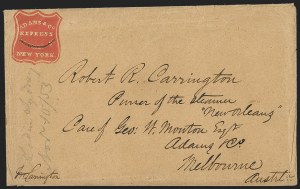 ADAMS & Co
EXPRESS
NEW-YORK
Robert R. Carrington
Purser of the steamer
"New Orleans"
Care of Geo: W. Monton Esqr
Adams & Co
Melbourne
Carrington